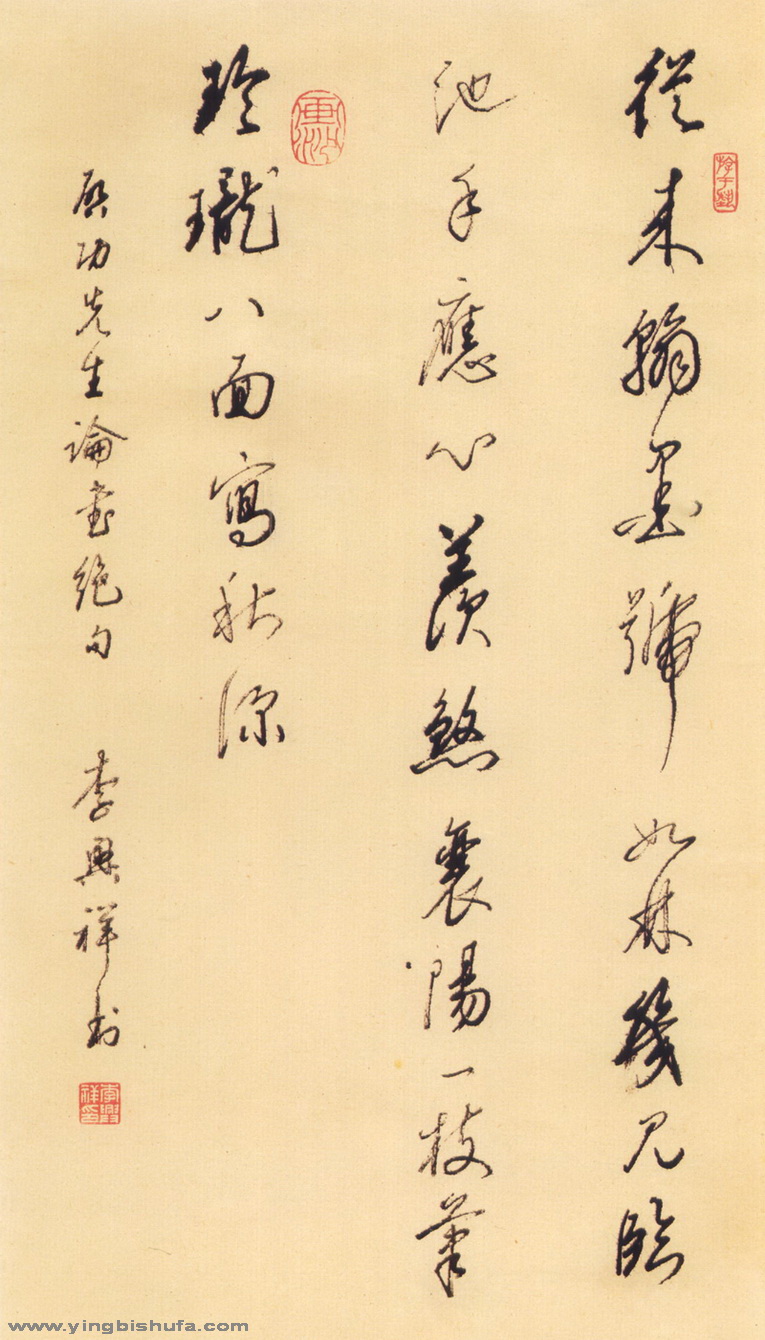 從来翰墨號如林幾見臨
池手應心羨煞襄陽一枝筆
玲瓏八面寫秋深
啟功先生論書絕句 李興祥書
李興祥印
www.yingbishufa.com